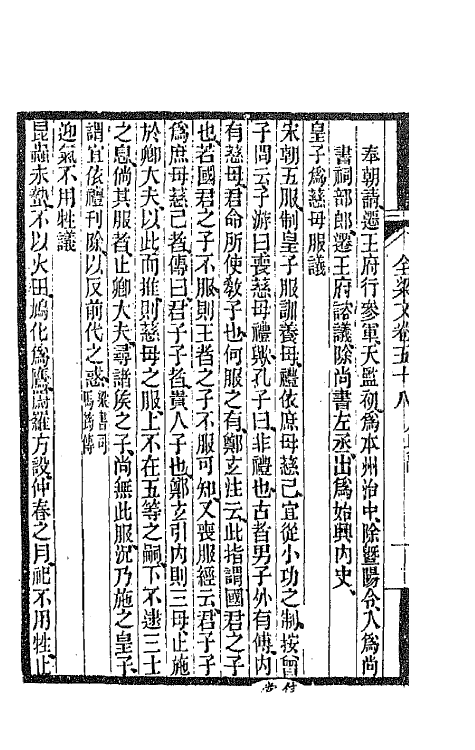 全梁文卷五十八
奉朝請遷王府行參軍天監初爲本州治中除暨陽令入爲尚
書祠部郎遷王府諮議除尚書左丞出爲始興內史
皇子爲慈母服議
宋朝五服制皇子服訓養母禮依庶母慈己宜從小功之制按曾
子問云子游曰喪慈母禮歟孔子曰非禮也古者男子外有傅內
有慈母君命所使教子也何服之有鄭玄注云此指謂國君之子
也若國君之子不服則王者之子不服可知又喪服經云君子子
爲庶母慈己者傳曰君子子者貴人子也鄭玄引內則三母止施
於卿大夫以此而推則慈母之服上不在五等之嗣下不逮三士
之息倘其服者止卿大夫尋諸侯之子尚無此服況乃施之皇子
謂宜依禮刊除以反前代之惑梁書司
馬筠傳
迎氣不用牲議
昆蟲未蟄不以火田鳩化爲鷹罻羅方設仲春之月祀不用牲止